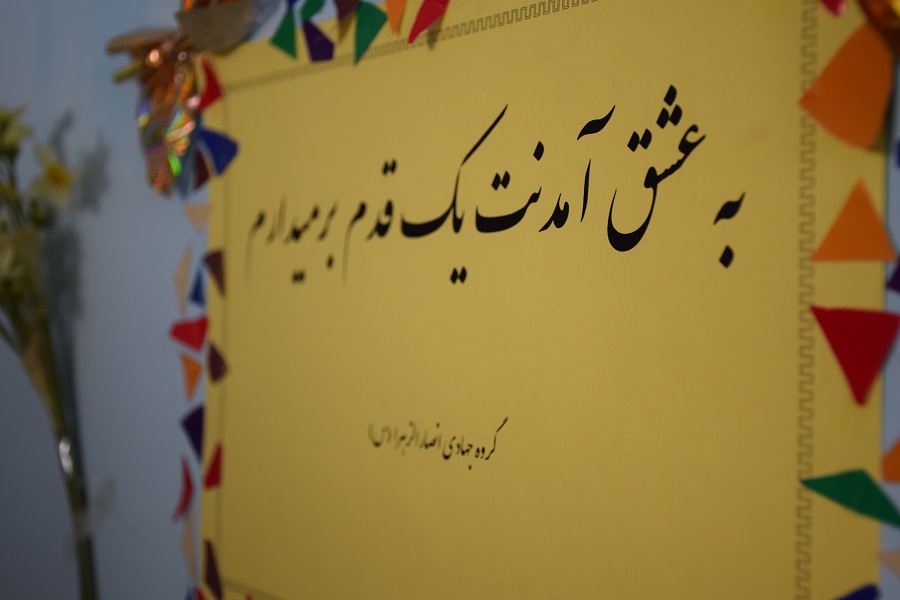 به عشق آمدنت یک قدم برمیدارم
گروه جهادی انصار الزهرا (س)